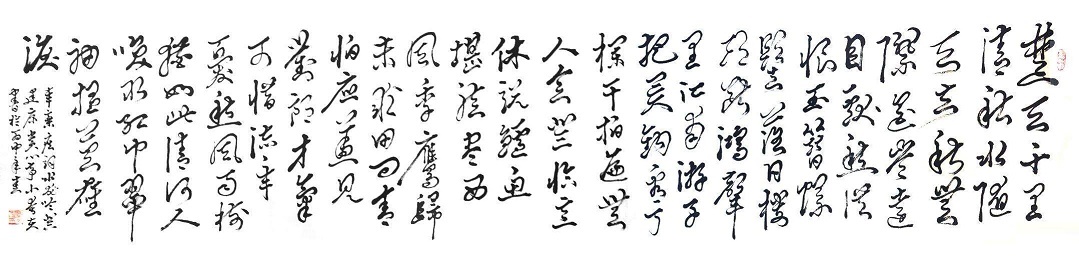 楚天千里
清秋水随
天去秋無
際遥岑遠
目献愁供
恨玉簪螺
髻落日樓
頭断鴻聲
里江南游子
把吴鈎看了
欄干拍遍無
人會登臨意
休説鱸魚
堪脍尽西
風季鷹歸
未求田问舍
怕应羞見
劉郎才氣
可惜流年
憂愁風雨樹
猶如此倩何人
唤取红巾翠
袖揾英雄
淚
辛棄疾詞水龍吟登
建康赏心亭
書於丙申年